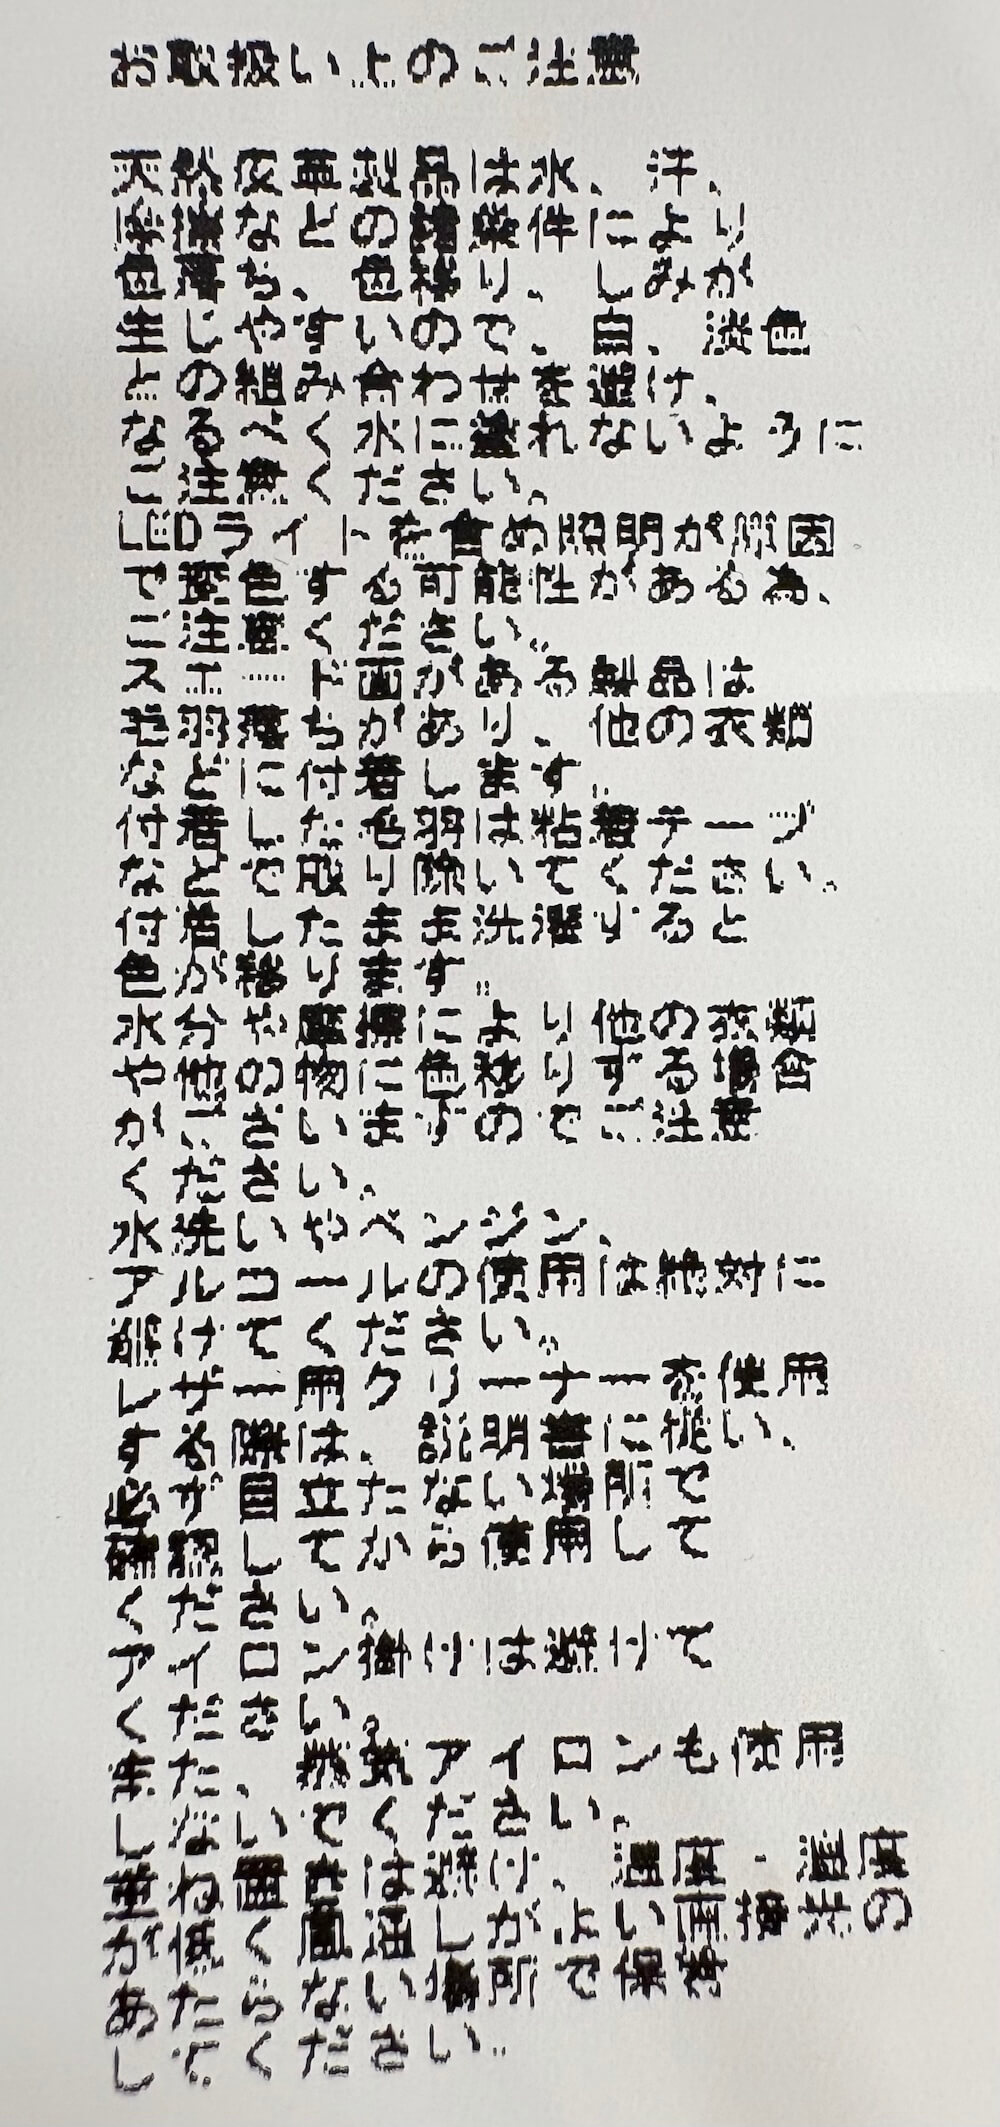 お取扱い上のご注意
天然皮革製品は水、汗、
摩擦などの諸条件により
色落ち、色移り、しみが
生じやすいので、白、淡色
との組み合わせを避け、
なるべく水に濡れないように
ご注意ください。
LEDライトを含め照明が原因
で変色する可能性がある為、
ご注意ください。
スエード面がある製品は
毛羽落ちがあり、他の衣類
などに付着します。
付着した毛羽は粘着テープ
などで取り除いてください。
付着したまま洗濯すると
色が移ります。
水分や摩擦により他の衣類
や他の物に色移りする場合
がございますのでご注意
ください。
水洗いやベンジン、
アルコールの使用は絶対に
避けてください。
レザー用クリーナーを使用
する際は、説明書に従い、
必ず目立たない場所で
確認してから使用して
ください。
アイロン掛けは避けて
ください。
また、蒸気アイロンも使用
しないでください。
重ね置きは避け、温度・湿度
が低く風通しがよい直接光の
あたらない場所で保管
してください。